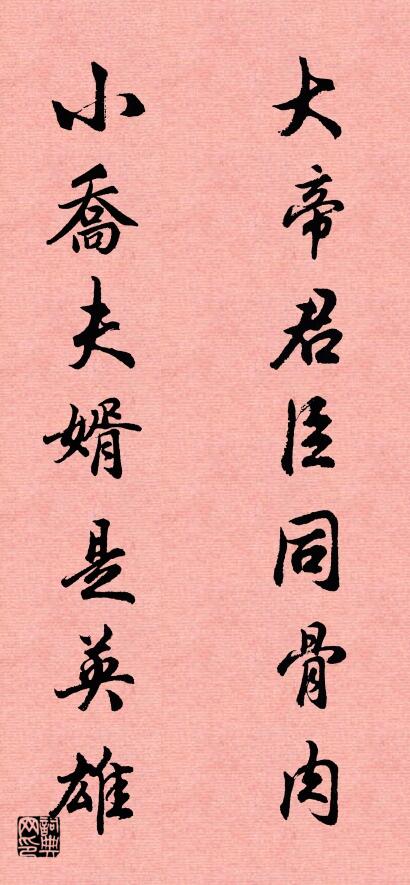 大帝君臣同骨肉
小喬夫婿是英雄
詞典网印